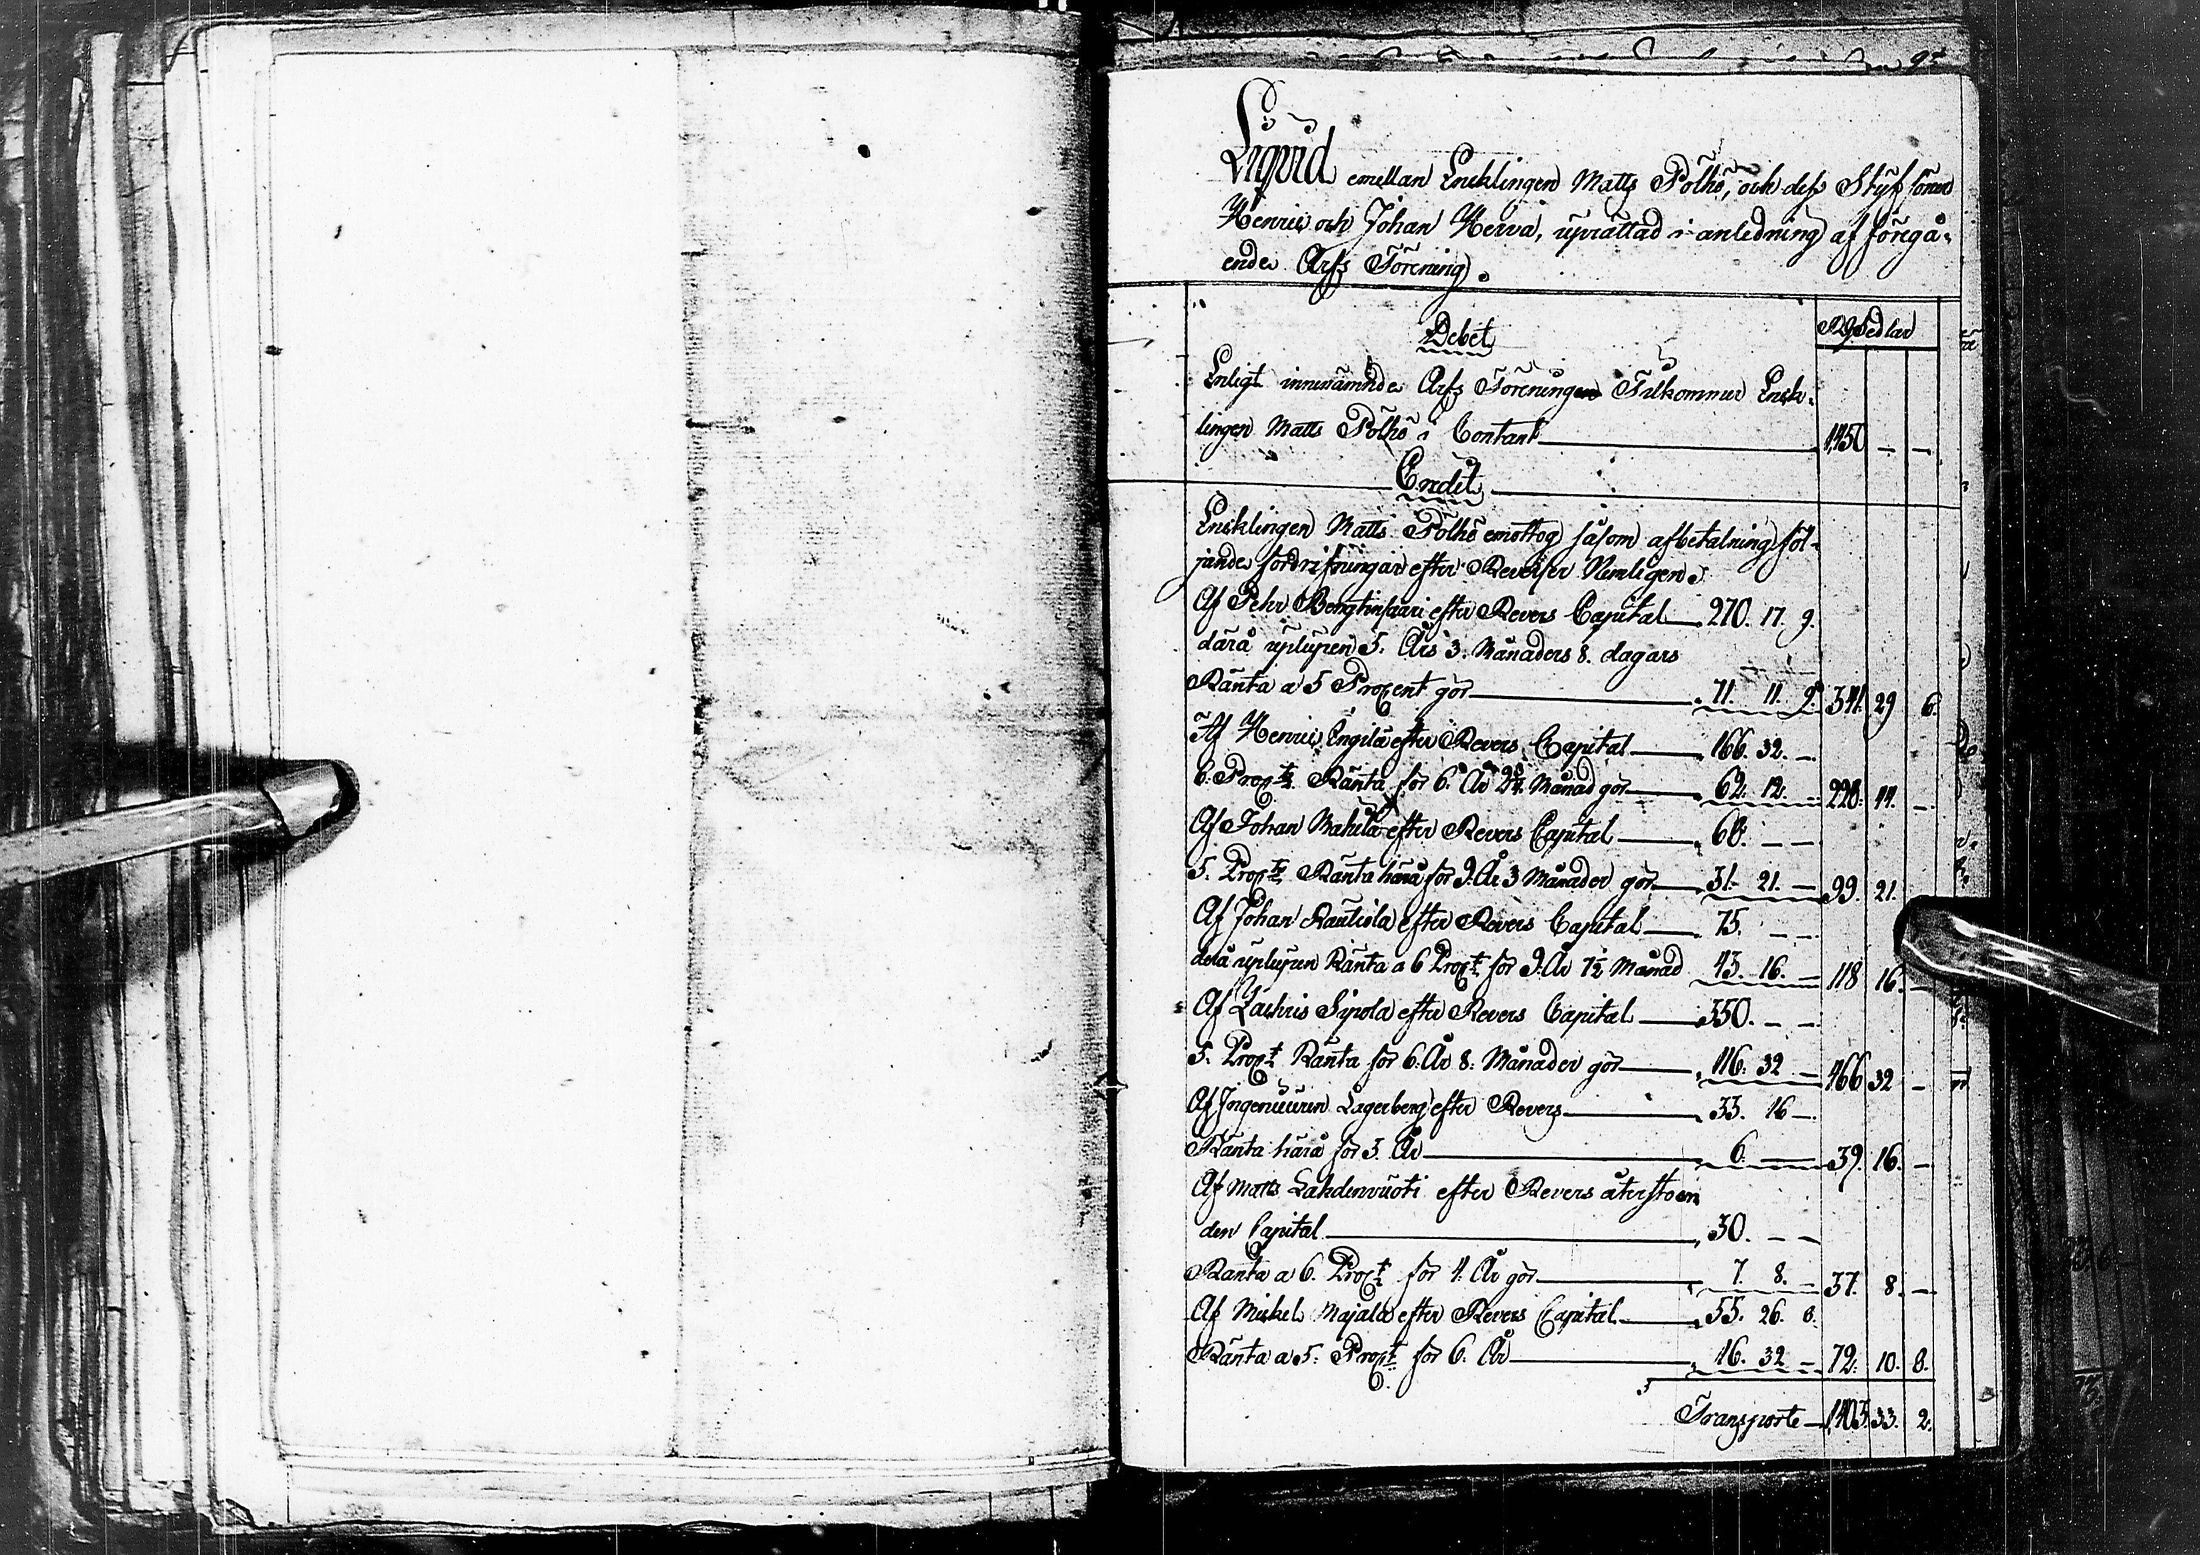 Liqvid emellan Encklingen Matts Pölhö, och dess Styfsöner
Henric och Johan Herva, uprättad i anledning af föregå-
ende Arfs Förening.
Debet
RgsSedlar
Enligt innenämnde Arfs Föreningen Tilkommer Enck-
lingen Matts Pölhö i Contant 1450 — —
Credit
Encklingen Matts Pölhö emottog såsom afbetalning föl-
jande fordrifningar efter Reverser Nemligen
Af Pehr Bengtinsaari efter Revers Capital 270. 17. 9.
därå uplupen 5. Års 3. Månaders 8. dagars
Ränta a 5 Procent gör 71. 11. 9. 341. 29 6.
Af Henric Engilä efter Revers Capital 166. 32. —
6. Proct. Ränta för 6. År 2¾ Månad gör 62. 12. — 228. 44. —
Af Johan Makela efter Revers Capital 68. — —
5. Proct. Ränta härå för 9. År 3 Månader gör 31. 21. — 99. 21.
Af Johan Rautiola efter Revers Capital 75. — —
derå uplupen Ränta a 6 Proct. för 9. År 7½ Månad 43. 16. — 118 16. —
Af Zachris Sipola efter Revers Capital 350. — —
5. Proct Ränta för 6. År 8. Månader gör 116. 32 — 466 32 —
Af Ingenieuren Lagerberg efter Revers 33. 16 —
Ränta härå för 3. År 6. — 39. 16. —
Af Matts Lahdenvuoti efter Revers återstoen
den Capital 30. — —
Ränta a 6. Proct för 4. År gör 7. 8. — 37. 8. —
Af Mickel Majala efter Revers Capital 55. 26. 8.
Ränta a 5. Proct. för 6. År 16. 32 — 72. 10. 8.
Transporte 1,403. 33. 2.